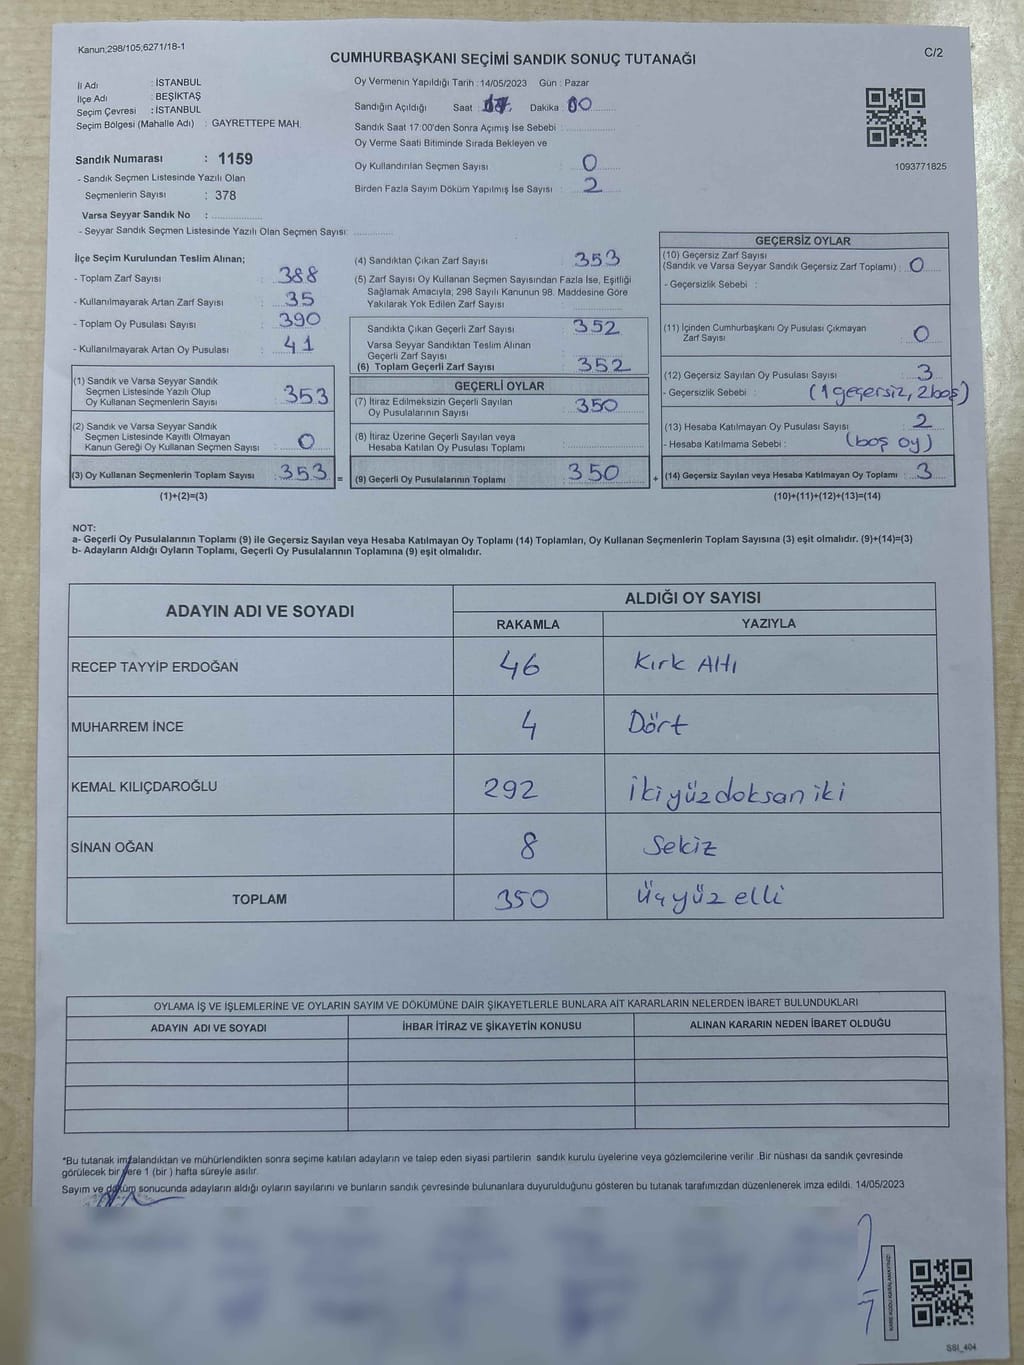 Kanun;298/105;6271/18-1
C/2
CUMHURBAŞKANI SEÇİMİ SANDIK SONUÇ TUTANAĞI
İl Adı : İSTANBUL
İlçe Adı : BEŞİKTAŞ
Seçim Çevresi : İSTANBUL
Seçim Bölgesi (Mahalle Adı) : GAYRETTEPE MAH.
Sandık Numarası : 1159
- Sandık Seçmen Listesinde Yazılı Olan
Seçmenlerin Sayısı : 378
Varsa Seyyar Sandık No :
- Seyyar Sandık Seçmen Listesinde Yazılı Olan Seçmen Sayısı:
Oy Vermenin Yapıldığı Tarih : 14/05/2023 Gün : Pazar
Sandığın Açıldığı Saat : 17. Dakika : 00
Sandık Saat 17:00'den Sonra Açımış İse Sebebi :
Oy Verme Saati Bitiminde Sırada Bekleyen ve
Oy Kullandırılan Seçmen Sayısı : 0
Birden Fazla Sayım Döküm Yapılmış İse Sayısı : 2
1093771825
İlçe Seçim Kurulundan Teslim Alınan;
- Toplam Zarf Sayısı : 388
- Kullanılmayarak Artan Zarf Sayısı : 35
- Toplam Oy Pusulası Sayısı : 390
- Kullanılmayarak Artan Oy Pusulası : 41
(1) Sandık ve Varsa Seyyar Sandık
Seçmen Listesinde Yazılı Olup
Oy Kullanan Seçmenlerin Sayısı : 353
(2) Sandık ve Varsa Seyyar Sandık
Seçmen Listesinde Kayıtlı Olmayan
Kanun Gereği Oy Kullanan Seçmen Sayısı : 0
(3) Oy Kullanan Seçmenlerin Toplam Sayısı : 353 =
(1)+(2)=(3)
(4) Sandıktan Çıkan Zarf Sayısı : 353
(5) Zarf Sayısı Oy Kullanan Seçmen Sayısından Fazla İse, Eşitliği
Sağlamak Amacıyla, 298 Sayılı Kanunun 98. Maddesine Göre
Yakılarak Yok Edilen Zarf Sayısı :
Sandıkta Çıkan Geçerli Zarf Sayısı : 352
Varsa Seyyar Sandıktan Teslim Alınan
Geçerli Zarf Sayısı :
(6) Toplam Geçerli Zarf Sayısı : 352
GEÇERLİ OYLAR
(7) İtiraz Edilmeksizin Geçerli Sayılan
Oy Pusulalarının Sayısı : 350
(8) İtiraz Üzerine Geçerli Sayılan veya
Hesaba Katılan Oy Pusulası Toplamı :
(9) Geçerli Oy Pusulalarının Toplamı : 350 +
GEÇERSİZ OYLAR
(10) Geçersiz Zarf Sayısı
(Sandık ve Varsa Seyyar Sandık Geçersiz Zarf Toplamı) : 0
- Geçersizlik Sebebi :
(11) İçinden Cumhurbaşkanı Oy Pusulası Çıkmayan
Zarf Sayısı : 0
(12) Geçersiz Sayılan Oy Pusulası Sayısı : 3
- Geçersizlik Sebebi : (1 geçersiz, 2 boş)
(13) Hesaba Katılmayan Oy Pusulası Sayısı : 2
- Hesaba Katılmama Sebebi : (boş oy)
(14) Geçersiz Sayılan veya Hesaba Katılmayan Oy Toplamı : 3
(10)+(11)+(12)+(13)=(14)
NOT:
a- Geçerli Oy Pusulalarının Toplamı (9) ile Geçersiz Sayılan veya Hesaba Katılmayan Oy Toplamı (14) Toplamları, Oy Kullanan Seçmenlerin Toplam Sayısına (3) eşit olmalıdır. (9)+(14)=(3)
b- Adayların Aldığı Oyların Toplamı, Geçerli Oy Pusulalarının Toplamına (9) eşit olmalıdır.
ADAYIN ADI VE SOYADI ALDIĞI OY SAYISI
RAKAMLA YAZIYLA
RECEP TAYYİP ERDOĞAN 46 Kırk Altı
MUHARREM İNCE 4 Dört
KEMAL KILIÇDAROĞLU 292 İkiyüzdoksan iki
SİNAN OĞAN 8 Sekiz
TOPLAM 350 Üçyüz elli
OYLAMA İŞ VE İŞLEMLERİNE VE OYLARIN SAYIM VE DÖKÜMÜNE DAİR ŞİKAYETLERLE BUNLARA AİT KARARLARIN NELERDEN İBARET BULUNDUKLARI
ADAYIN ADI VE SOYADI İHBAR İTİRAZ VE ŞİKAYETİN KONUSU ALINAN KARARIN NEDEN İBARET OLDUĞU
*Bu tutanak imzalandıktan ve mühürlendikten sonra seçime katılan adayların ve talep eden siyasi partilerin sandık kurulu üyelerine veya gözlemcilerine verilir. Bir nüshası da sandık çevresinde
görülecek bir yere 1 (bir ) hafta süreyle asılır.
Sayım ve döküm sonucunda adayların aldığı oyların sayılarını ve bunların sandık çevresinde bulunanlara duyurulduğunu gösteren bu tutanak tarafımızdan düzenlenerek imza edildi. 14/05/2023
SSI_404